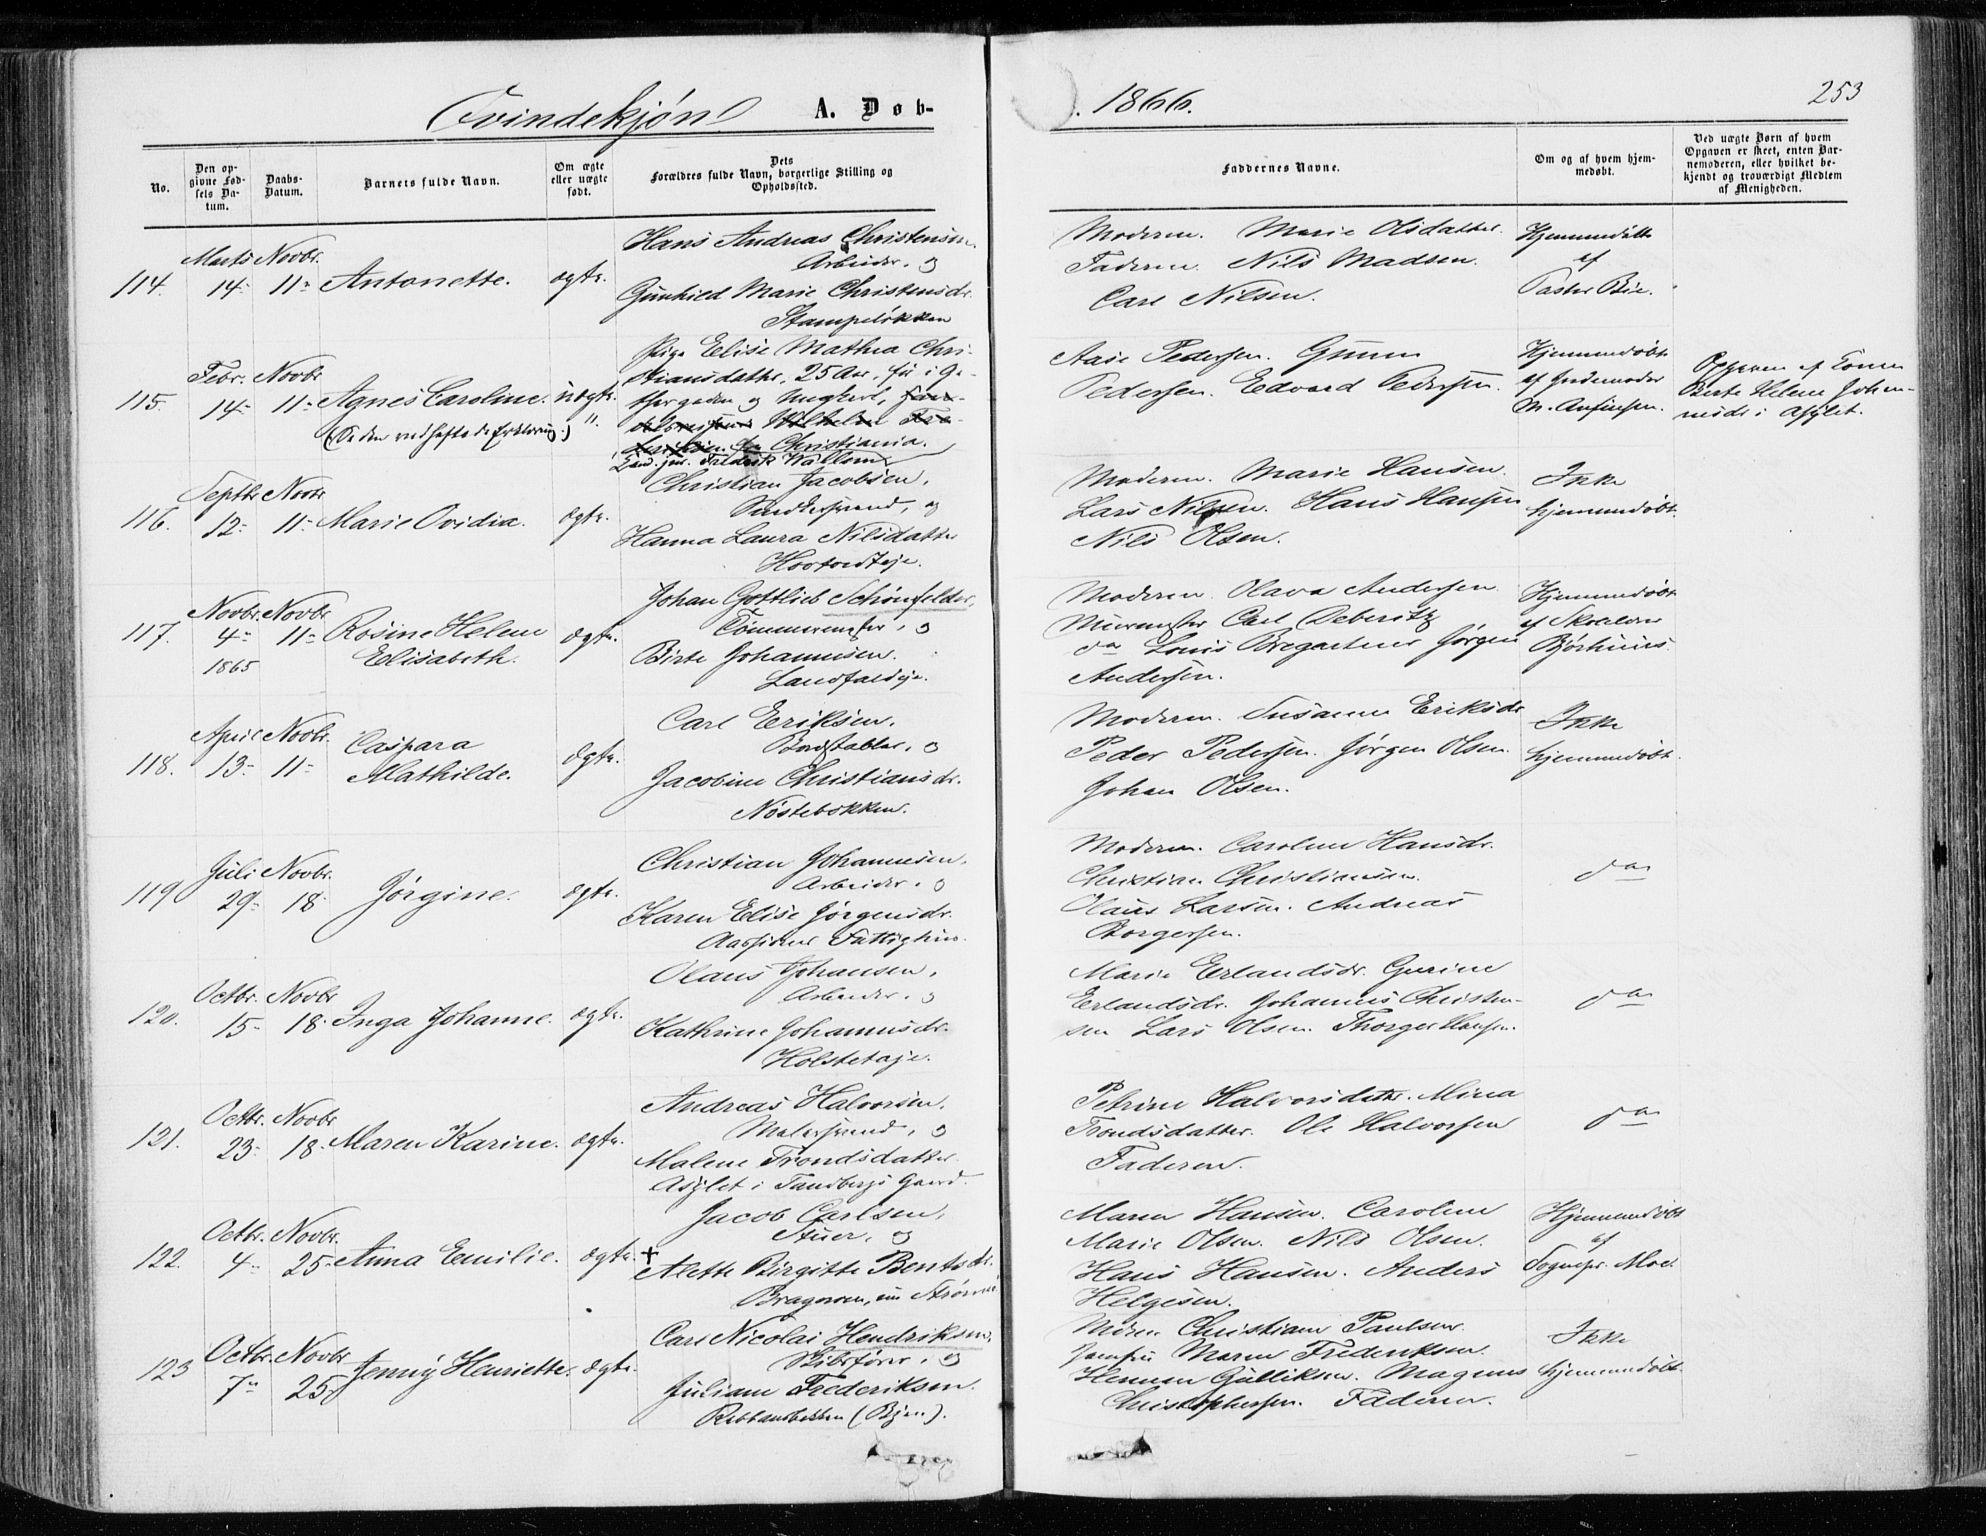 Qvindekjøn A. Døb-
. 1866.
253
No.
Den op-
givne Fød-
sels Da-
tum.
Daabs-
Datum.
Barnets fulde Navn.
Om ægte
eller uægte
født.
Dets
Forældres fulde Navn, borgerlige Stilling og
Opholdssted.
Faddernes Navne.
Om og af hvem hjem-
medøbt.
Ved uægte Børn af hvem
Opgaven er skeet, enten Bar-
nemoderen, eller hvilket be-
kjendt og troværdigt Medlem
af Menigheden.
114.
Marts
14
Novbr.
11
Antonette.
ægte.
Hans Andreas Christensen.
Arbeider, og
Gunhild Marie Christensdr.
Stampeløkken
Moderen. Marie Olsdatter.
Faderen. Nils Madsen.
Carl Nilsen.
Hjemmedøbt
af
Pastor Bie.
115.
Febr.
14
Novbr
11
Agnes Caroline.
(Se den vedheftede Erklæring.)
uægte.
Pige Elise Mathea Chri-
stiansdatter, 25 Aar, før i Ge-
og Ungkarl,
Wilhelm Fre-
Christiania.
Cand. jur. Fredrik Wallem
Aase Pedersen. Gunn
Pedersen. Edvard Pedersen.
Hjemmedøbt
af Jordemoder
M. Arnfinsen.
Opgaven af Konen
Berte Helene Johan-
i Asylet.
116.
Septbr
12
Novbr
11
Marie Ovidia.
ægte.
Christian Jacobsen,
Snedkersvend, og
Hanna Laura Nilsdatter
Moderen. Marie Hansen.
Lars Nilsen. Hans Hansen
Nils Olsen.
Ikke
hjemmedøbt.
117.
Novbr.
4
1865
Novbr
11
Rosine Helene
Elisabeth.
ægte.
Johan Gottlieb Schönfelder,
Tømmermester, og
Birte Johannesen.
Landfaldøje.
Moderen. Olava Andersen
Murmester Carl Deberitz
do Louis Bregartner Jørgen
Andersen.
Hjemmedøbt
af Skolelærer
Bjørhuus.
118.
April
13
Novbr.
11
Caspara
Mathilde.
ægte.
Carl Eriksen.
Bordstabler, og
Jacobine Christiansdr.
Nøstebakken.
Moderen. Susanne Eriksdr
Peder Pedersen. Jørgen Olsen.
Johan Olsen.
Ikke
hjemmedøbt.
119
Juli
29
Novbr.
18
Jørgine.
ægte.
Christian Johannesen.
Arbeider, og
Karen Elise Jørgensdr.
Aassiden Fattighus.
Moderen. Caroline Hansdr.
Christian Christiansen.
Olaus Larsen. Andreas
Borgersen.
do
120.
Octbr.
15
Novbr
18
Inga Johanne.
ægte.
Olaus Johansen,
Arbeider, og
Kathrine Johannesdr.
Marie Erlandsdr. Gurine
Erlandsdr. Johannes Christen-
sen Lars Olsen. Thorger Hansen.
do
121.
Octbr.
23
Novbr
18
Maren Karine.
ægte.
Andreas Halvorsen.
Malersvend, og
Malene Trondsdatter
Asylet i Tandbergs Gaard.
Petrine Halvorsdatter. Mina
Trondsdatter. Ole Halvorsen
Faderen.
do
122.
Octbr.
4
Novbr.
25
Anna Emilie.
ægte.
+
Jacob Carlsen,
Stuer, og
Alette Birgitte Bentsdr.
Bragernes, nu Strømsø
Maren Hansen. Caroline
Marie Olsen. Nils Olsen.
Hans Hansen. Anders
Helgesen.
Hjemmedøbt
af
Sognepr. Moe.
123
Octbr.
7
Novbr
25
Jenny Henriette.
ægte.
Carl Nicolai Hendriksen,
Skibsfører, og
Juliane Frederiksen.
Madm Christiane Paulsen.
Jomfru Maren Frederiksen.
Herman Gulliksen. Magnus
Christophersen. Faderen.
Ikke
hjemmedøbt